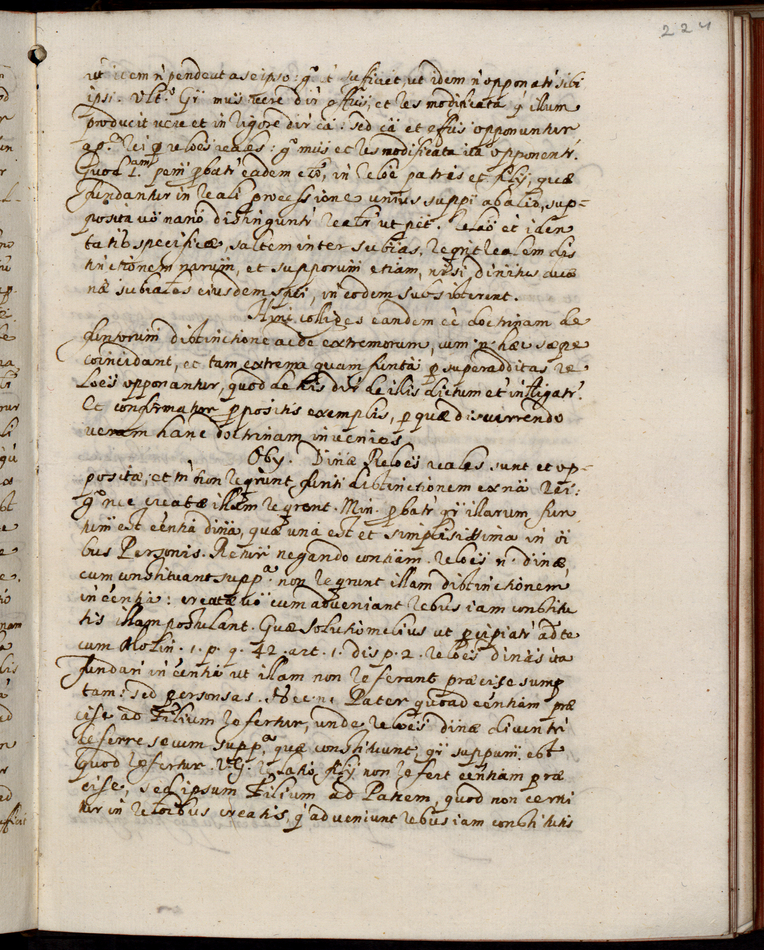 224
ut idem n̄ pendeat a se ipso: g.º ē suficiet, ut idem n̄ opponatr̄ sibi
ipsi. Vlt.º Gr̄ miis vere dir̄ effūs, et res modificata q̄ illum
producit vere et in rigore dir̄ cā: sed cā et effūs opponuntur
ad.º rei p̄ reloēs reales: g.º miis et res modificata ita opponentr̄.
Quod 1.am penr̄ p̄batr̄ eadem in reloē patris et filij, quæ
fundantur in reali processione unius suppi ab alio, sup-
posita uō nano distinguntr̄ realr̄ ut pēt. Relaō et iden
tatis specificæ, saltem inter subias, reqrit realem dis
tinctionem narum, et supporum etiam, nisi divinitus duæ
næ subiales eiusdem spēi, in eodem subsisterent.
Hinc colliges eandem eē doctrinam de
funtorum distinctione ac de extremorum, cum n̄ hæc sæpe
coincidant, et tam extrema quam funta p̄ superadditas re
loēs opponantur, quod de his dir̄ de illis dictum et intligatr̄.
Et confirmatur p̄positis exemplis, p̄ quæ discurrendo
veram hanc doctrinam invenies.
Obij. Dinæ Reloēs reales sunt et op-
positæ, et tn̄ non reqrunt funti distinctionem ex nā rei:
g.º nec creatæ illam reqrent. Min. p̄batr̄ qr̄ illarum fun
tum est eentia dina, quæ una est et simplisissima in oi
bus Personis. Retur̄ negando contiam. reloēs n̄. dinæ,
cum constituant supp.ª non reqrunt illam distinctionem
in eentia: creatæ uō cum adveniant rebus iam constitu
tis illam postulant. Quæ solutio melius ut p̄cipiatr̄ adte
cum Molin. 1. p. q. 42. art. 1. disp. 2. reloēs dinas ita
fundari in eentia ut illam non referant præcise sump
tam: sed personas. Nec n̄. Pater quoad eentiam præ
cise ad Filium refertur, unde reloēs dinæ dicuntr̄
referre secum supp.ª quæ constituunt, qr̄ suppum est
quod refertur. V.g. relatio filij non refert eentiam præ
cise, sed ipsum Filium ad Patrem, quod non cerni
tur in reloibus creatis, q̄ adveniunt rebus iam constitutis